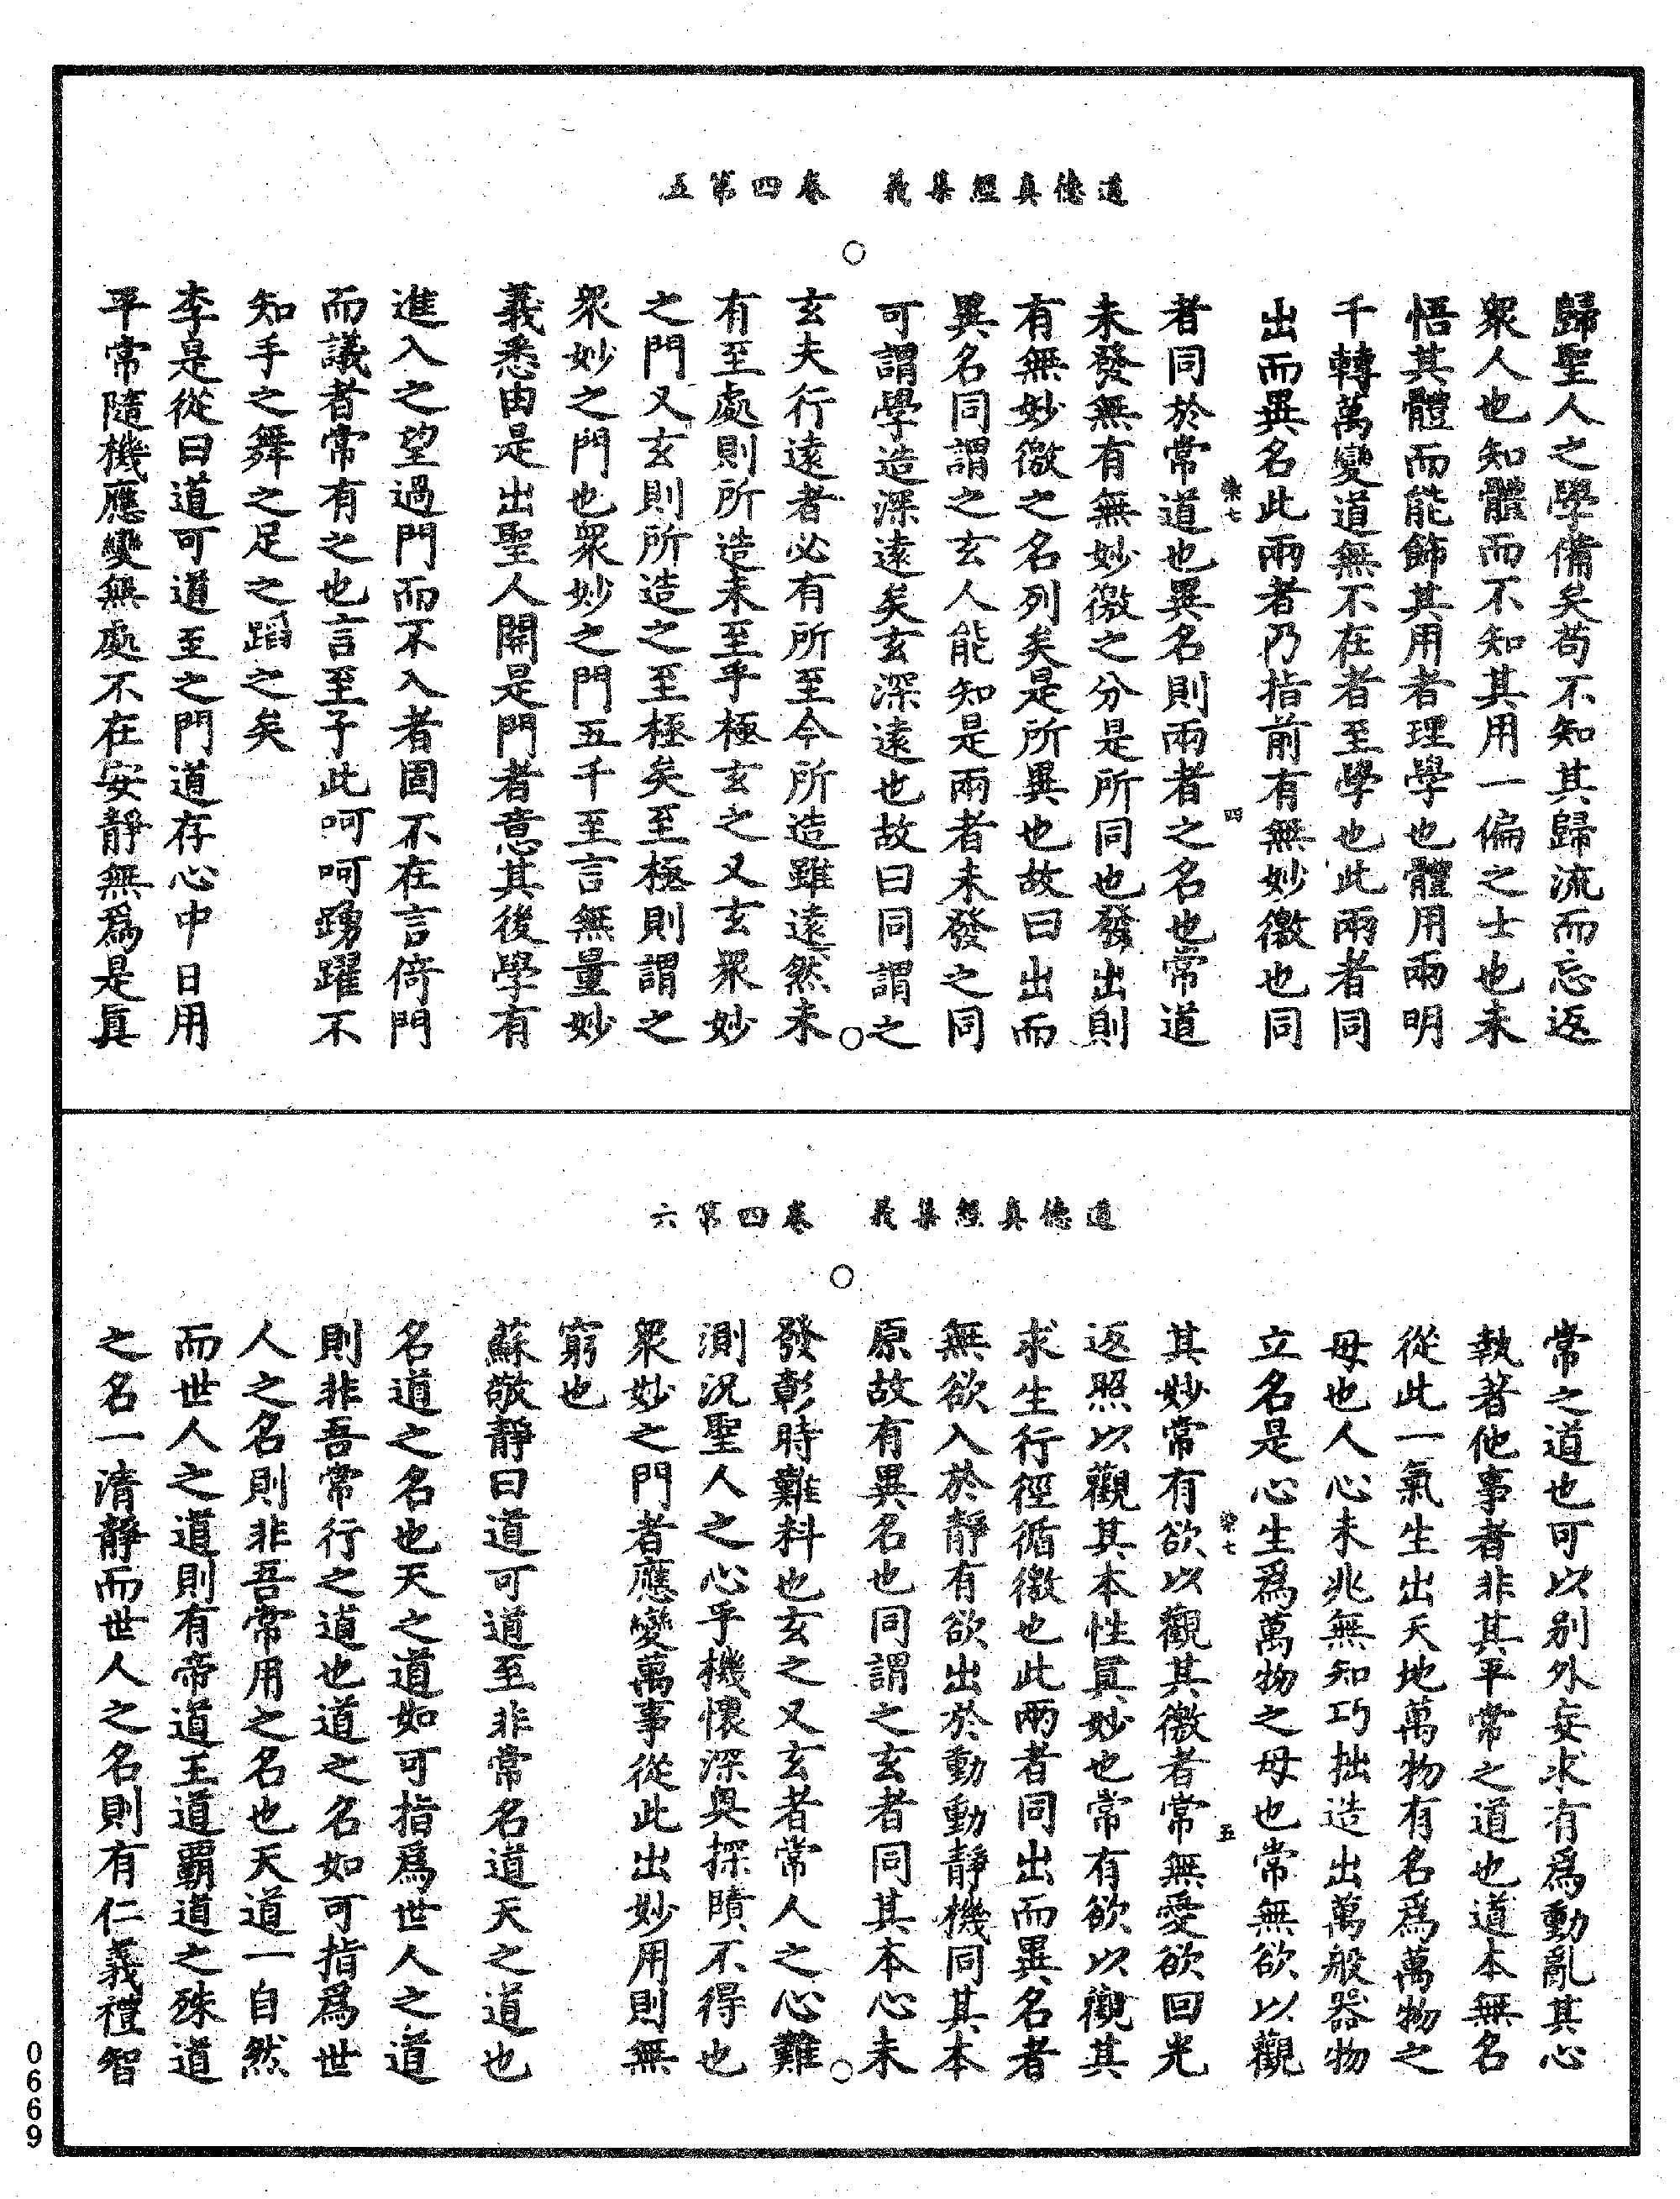 道德真經集義　卷四第五
歸聖人之學備矣苟不知其歸流而忘返
衆人也知體而不知其用一偏之士也未
悟其體而能飾其用者理學也體用兩明
千轉萬變道無不在者至學也此兩者同
出而異名此兩者乃指前有無妙徼也同
染七　四
者同於常道也異名則兩者之名也常道
未發無有無妙徼之分是所同也發出則
有無妙徼之名列矣是所異也故曰出而
異名同謂之玄人能知是兩者未發之同
可謂學造深遠矣玄深遠也故曰同謂之
玄夫行遠者必有所至今所造雖遠然未
有至處則所造未至乎極玄之又玄衆妙
之門又玄則所造之至極矣至極則謂之
衆妙之門也衆妙之門五千至言無量妙
義悉由是出聖人開是門者意其後學有
進入之望過門而不入者固不在言倚門
而議者常有之也言至于此呵呵踴躍不
知手之舞之足之蹈之矣
李是從曰道可道至之門道存心中日用
平常隨機應變無處不在安靜無爲是眞
道德真經集義　卷四第六
常之道也可以别外妄求有爲動亂其心
執著他事者非其平常之道也道本無名
從此一氣生出天地萬物有名爲萬物之
母也人心未兆無知巧拙造出萬般器物
立名是心生爲萬物之母也常無欲以觀
染七　五
其妙常有欲以觀其徼者常無愛欲回光
返照以觀其本性眞妙也常有欲以觀其
求生行徑循徼也此兩者同出而異名者
無欲入於靜有欲出於動動靜機同其本
原故有異名也同謂之玄者同其本心未
發彰時難料也玄之又玄者常人之心難
測況聖人之心乎機懷深奥探賾不得也
衆妙之門者應變萬事從此出妙用則無
窮也
蘇敬靜曰道可道至非常名道天之道也
名道之名也天之道如可指爲世人之道
則非吾常行之道也道之名如可指爲世
人之名則非吾常用之名也天道一自然
而世人之道則有帝道王道覇道之殊道
之名一清靜而世人之名則有仁義禮智
0669